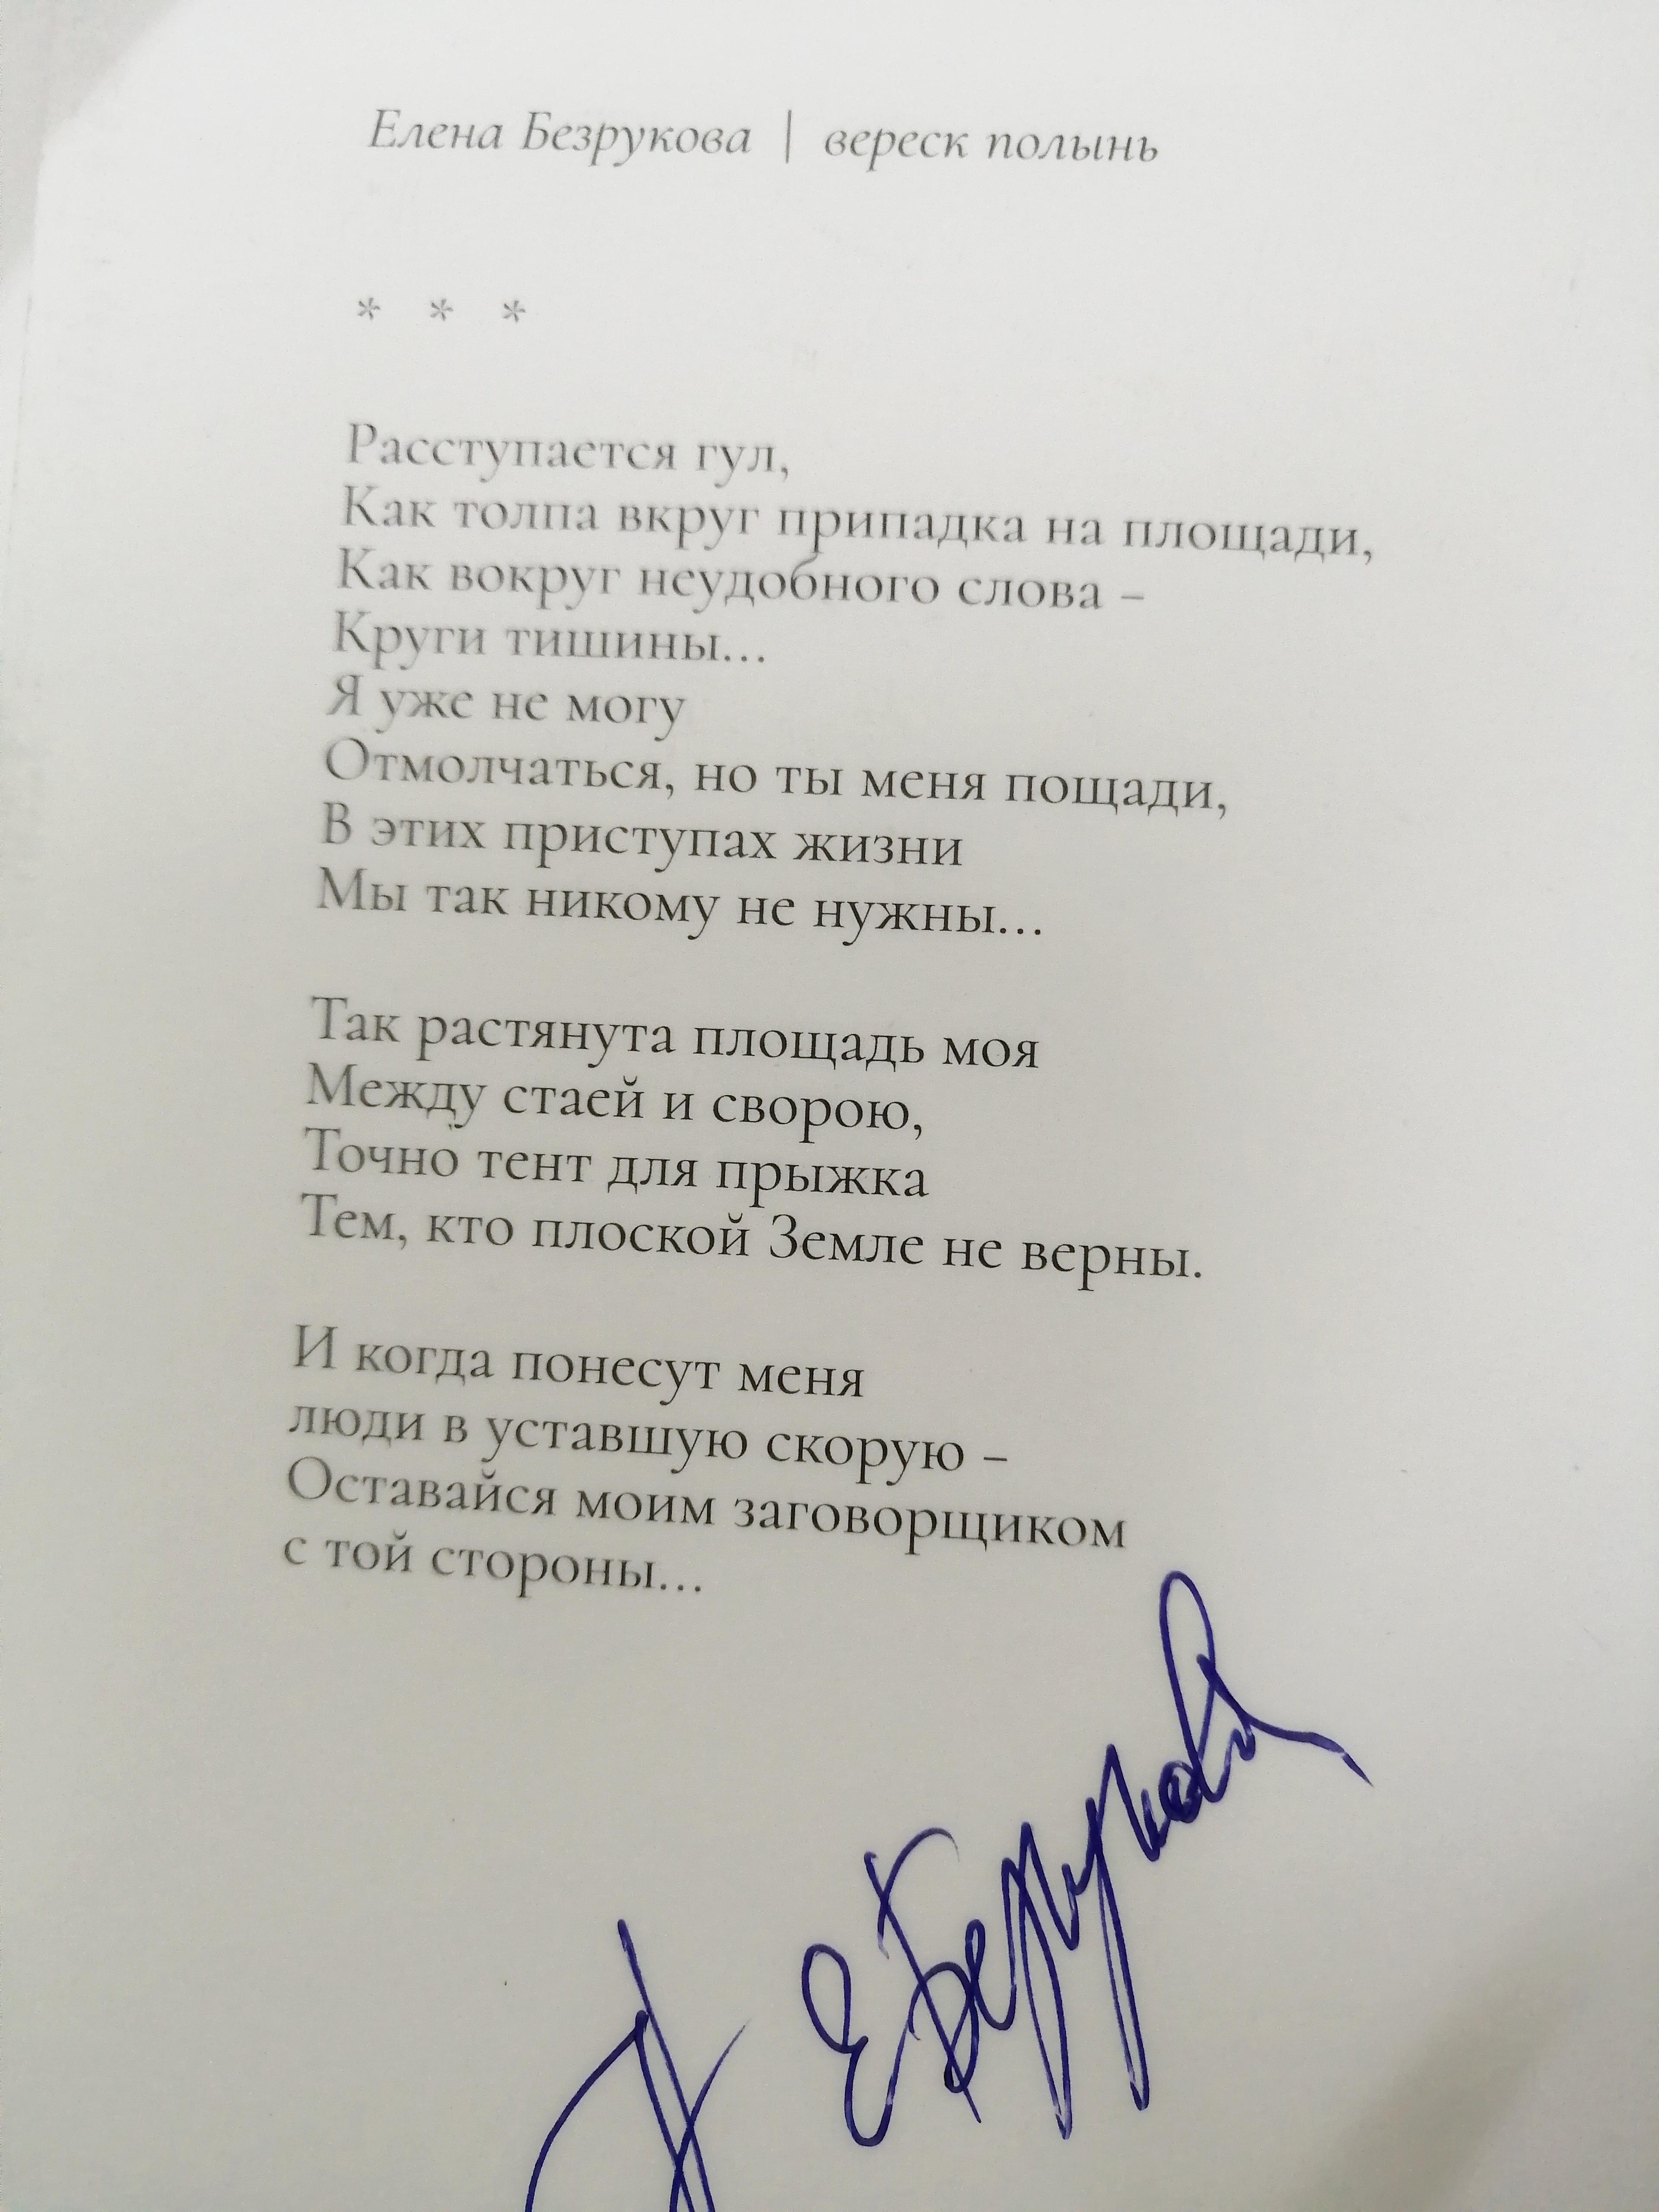 Елена Безрукова | вереск полынь
* * *
Расступается гул,
Как толпа вкруг припадка на площади,
Как вокруг неудобного слова –
Круги тишины...
Я уже не могу
Отмолчаться, но ты меня пощади,
В этих приступах жизни
Мы так никому не нужны...
Так растянута площадь моя
Между стаей и сворою,
Точно тент для прыжка
Тем, кто плоской Земле не верны.
И когда понесут меня
люди в уставшую скорую –
Оставайся моим заговорщиком
с той стороны...
Е Безрукова